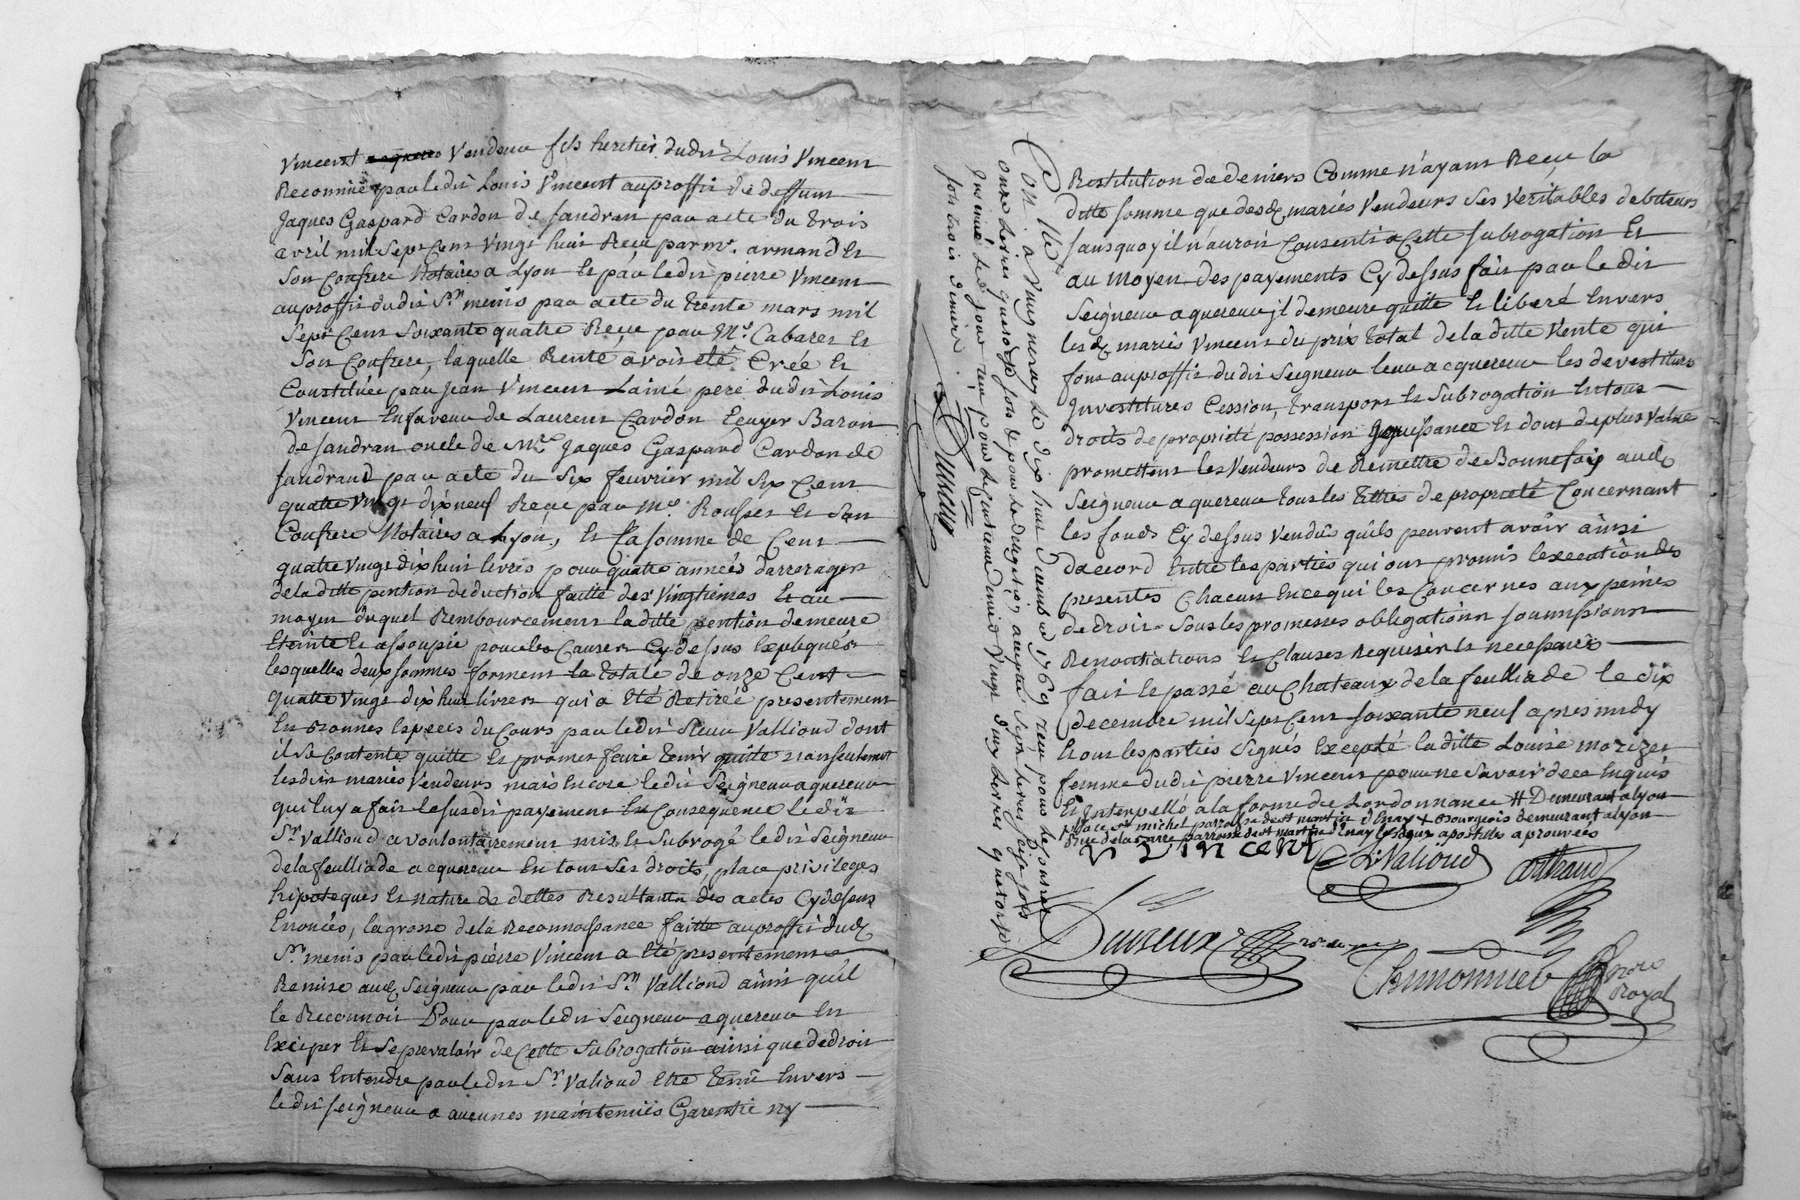 Vincent vendeur fils heritier dudit Louis Vincent
Reconnüe par ledit Louis Vincent au proffit de deffunt
Jaques Gaspard Cardon de Sandran par acte du trois
avril mil sept cent vingt huit Reçu par me. armand et
son Confrere Notaires a Lyon et par ledit pierre Vincent
au proffit dudit Sr. menis par acte du trente mars mil
sept cent soixante quatre Reçu par Me. Cabaret et
son Confrere, laquelle Rente avoit eté Créé et
Constituée par jean Vincent Lainé pere dudit Louis
Vincent En faveur de Laurent Cardon Ecuyer Baron
de sandran oncle de Mre. Jaques Gaspard Cardon de
sandrand par acte du Six feuvrier mil Six Cent
quatre vingt dix neuf Reçu par Me. Rousset et son
Confrere Notaires a Lyon, et la somme de Cent
quatre vingt dix huit livres pour quatre années d'arrerages
de la ditte pention deduction faitte des Vingtiemes Et au
moyen duquel Rembourcement la ditte pention demeure
Eteinte et assoupie pour les Causes Cy dessus Expliquées
lesquelles deux sommes forment la totale de onze Cent
quatre vingt dix huit livres qui a eté Retirée presentement
En Bonnes Espèces du Cours par ledit Sieur Vallioud dont
il se Contente quitte et promet faire tenir quitte non seulement
lesdits mariés Vendeurs mais Encore ledit Seigneur aquereur
qui luy a fait le susdit payement En Consequence ledit
Sr. Vallioud a volontairement mis, et Subrogé ledit Seigneur
de la feulliade acquereur En tous ses droits, place privileges
hipoteques et nature de dettes Resultantes des actes Cy dessus
Enoncés, la grosse de la Reconnoissance faitte au proffit dudt.
Sr. menis par ledit pierre Vincent a eté presentement
Remise audt. Seigneur par ledit Sr. Valliond ainsi quil
le Reconnoit Pour par ledit Seigneur aquereur En
Exciper et se prevaloir de Cette Subrogation ainsi que de droit
Sans Entendre par ledit Sr. Valioud Etre tenû Envers
ledit seigneur a aucunes maintenües Garentie ny
Restitution de deniers Comme n'ayant Reçu la
ditte somme que desdt. mariés Vendeurs Ses Veritables debiteurs
sans quoy il n'auroit Consenti a Cette subrogation Et
au moyen des payements Cy dessus fait par ledit
Seigneur aquereur jl demeure quitte Et liberé Envers
lesdt. mariés Vincent du prix total de la ditte Vente qui
font au proffit dudit Seigneur leur acquereur les devestitures
Jnvestitures Cession, transport et Subrogation En tous
droits de propriété possession Jouissance et dont de plus Value
promettent les Vendeurs de Remettre de Bonne foy audt.
Seigneur aquereur tous les tittres de propriété Concernant
les fonds Cy dessus Vendûs quils peuvent avoir ainsi
daccord Entre les parties qui ont promis lexecution des
presentes Chacun En ce qui les Concernes aux peines
de droit Sous les promesses obligations soumissions
Renontiations et Clauses Requises et necessaires
fait et passé au Chateaux de la feulliade le dix
decembre mil sept Cent soixante neuf apres midy
Et ont les parties signés Excepté la ditte Louise morizet
femme dudit pierre Vincent pour ne savoir de ce Enquis
Et Jnterpellé a la forme de Lordonnance # Demeurant a lyon
place st. michel parroisse de st martin d'Enay + Bourgeois demeurant a lyon
Rue de la barre parroisse de st martin d'Enay les deux apostilles aprouvées
Vincent
L. Valioud
arthaud
Dutreux
Thimonnier Nore Royal
Conllé a Vaugneray le dix huit decembre 1769 reçu pour le present
onze livres quatorze sols & pour la delegation acceptée sept livres seize sols
insinué led. jour reçu pour le centieme denier vingt deux livres quatorze
sols trois deniers.
Dutreux